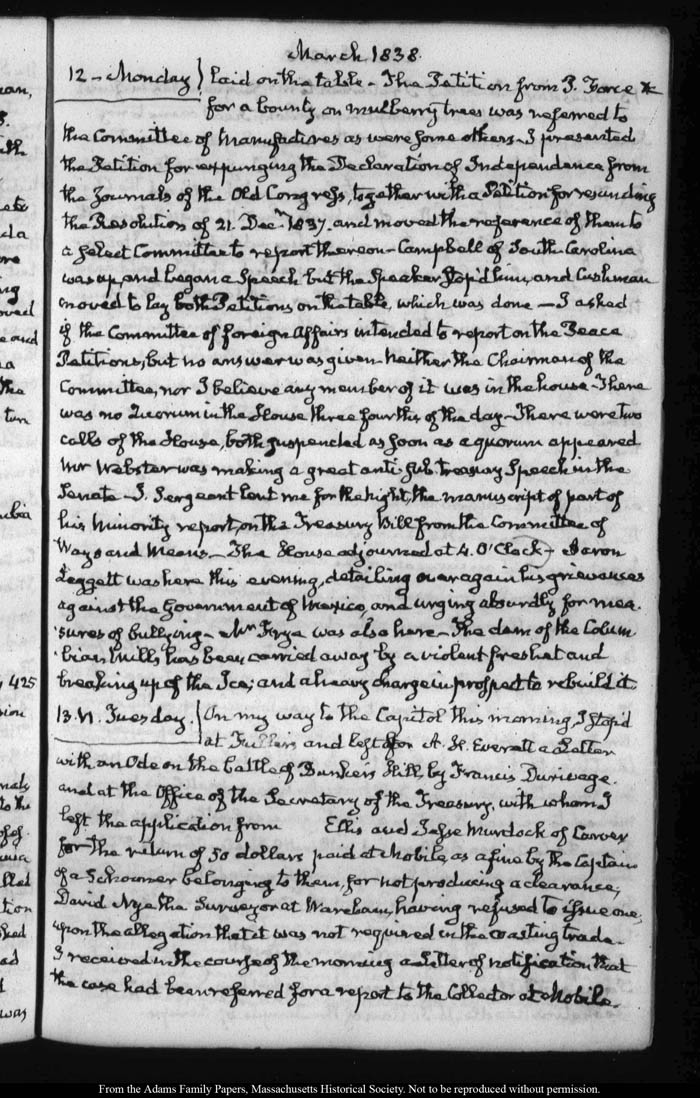 March 1838.
12 - Monday } laid on the table - The Petition from P. Force &c
for a bounty on mulberry trees was referred to
the Committee of Manufactures as were some others - I presented
the Petition for expunging the Declaration of Independence from
the Journals of the Old Congress, together with a Petition for rescinding
the Resolution of 21. Decr 1837. and moved the reference of them to
a select Committee to report thereon - Campbell of South Carolina
was up, and began a Speech but the Speaker stop'd him, and Cushman
moved to lay both Petitions on the table, which was done - I asked
if the Committee of foreign Affairs intended to report on the Peace
Petitions, but no answer was given - neither the Chairman of the
Committee, nor I believe any member of it was in the house - There
was no Quorum in the House three fourths of the day - There were two
calls of the House, both suspended as soon as a quorum appeared
Mr Webster was making a great anti sub. treasury Speech in the
Senate - J. Sergeant lent me for the night, the manuscript of part of
his Minority report, on the Treasury Bill from the Committee of
Ways and Means. - The House adjourned at 4. O'Clock -
Aaron
Leggett was here this evening, detailing over again his grievances
against the Government of Mexico, and urging absurdly for mea-
sures of bullying - Mr Frye was also here - The dam of the Colum-
bian Mills, has been carried away by a violent freshet and
breaking up of the Ice; and a heavy charge in prospect to rebuild it.
13. VI. Tuesday. } On my way to the Capitol this morning, I stop'd
at Fuller's and left for A. H. Everett a Letter
with an Ode on the battle of Bunker's Hill, by Francis Durivage.
and at the Office of the Secretary of the Treasury, with whom I
left the application from Ellis and Jesse Murdock of Carver
for the return of 50 dollars paid at Mobile, as a fine by the Captain
of a Schooner belonging to them, for not producing a clearance,
David Nye the Surveyor at Wareham, having refused to issue one,
upon the allegation that it was not required in the coasting trade.
I received in the course of the morning a Letter of notification that
the case had been referred for a report to the Collector at Mobile.
From the Adams Family Papers, Massachusetts Historical Society. Not to be reproduced without permission.